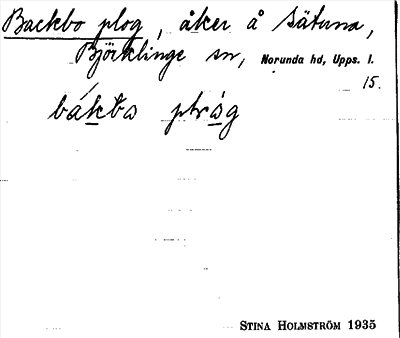 Backbo plog, åker å Sätuna,
Björklinge sn, Norunda hd, Upps. l.
15.
STINA HOLMSTRÖM 1935